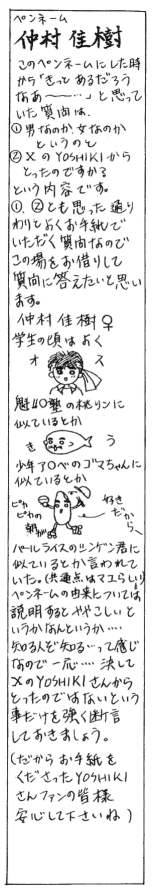 ペンネーム
仲村佳樹
このペンネームにした時
から「きっとあるだろう
なあ〜〜…」と思って
いた質問は、
①男なのか、女なのか
というのと
②XのYOSHIKIから
とったのですか?
という内容です。
①、②とも思った通り
わりとよくお手紙で
いただく質問なので
この場をお借りして
質問に答えたいと思い
ます。
仲村佳樹♀
学生の頃はよく
オス
魁!!○塾の桃りンに
似ているとか
きう
少年ア○ベのゴマちゃんに
似ているとか
ピカピカの
朝が
好き
だから
パールライスのジンゲン君に
似ているとか言われて
いた。(共通点はマユらしい)
ペンネームの由来については
説明するとややこしいと
いうかなんというか…
知る人ぞ知るいって感じ
なので一応…決して
XのYOSHIKIさんから
とったのではないという
事だけを強く断言
しておきましょう。
(だからお手紙を
くださったYOSHIKI
さんファンの皆様
安心して下さいね)